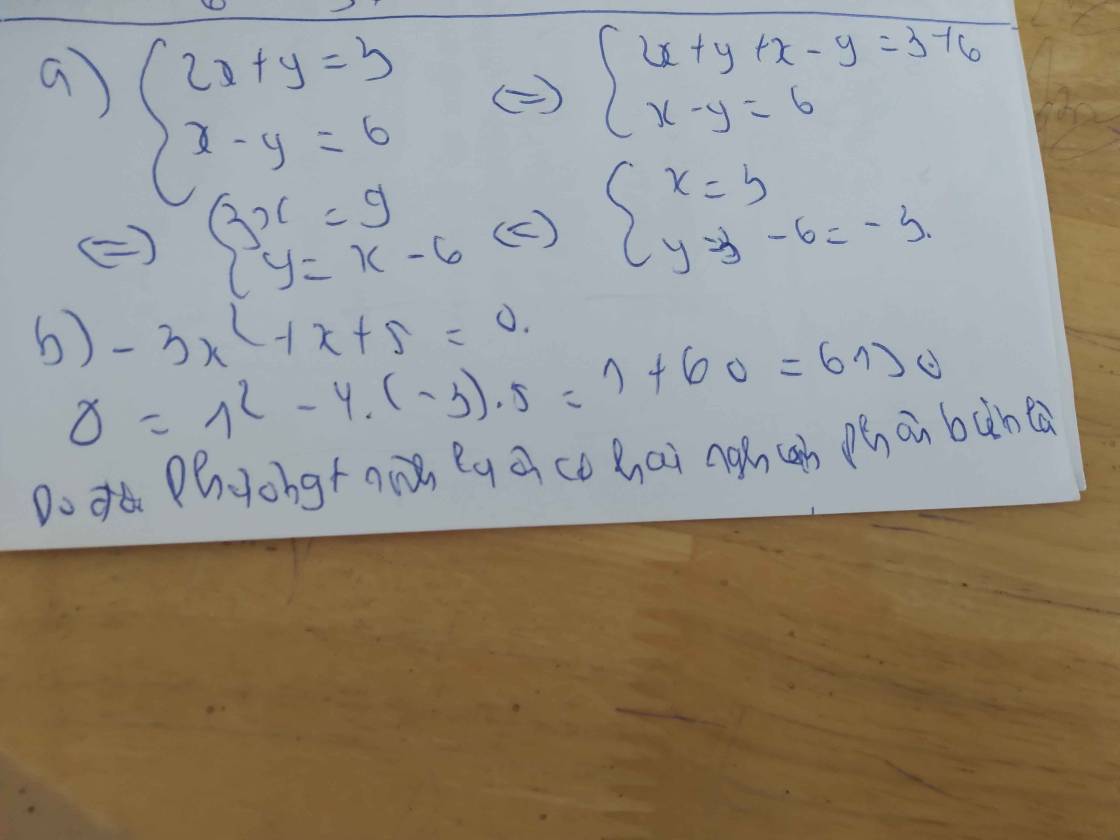 a) { 2x + y = 3
x - y = 6
<=> { 2x + y + x - y = 3 + 6
x - y = 6
<=> { 3x = 9
y = x - 6
<=> { x = 3
y = 3 - 6 = -3.
b) -3x² + x + 5 = 0.
Δ = 1² - 4.(-3).5 = 1 + 60 = 61 > 0
Do đó Phương trình luôn có hai nghiệm phân biệt là